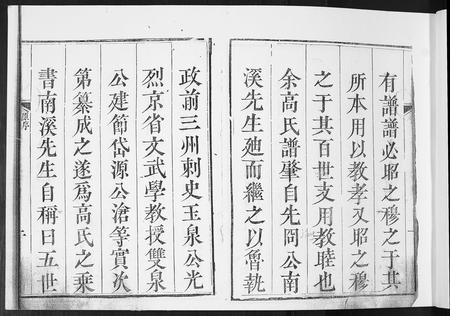 有譜譜必昭之穆之于其
所本用以教孝又昭之穆
之于其百世支用教睦也
余高氏譜肇自先冏公南
溪先生廸而繼之以魯執
政前三州刺史玉泉公光
烈京省文武學教授雙泉
公建節岱源公滄等實次
第纂成之遂爲高氏之乘
書南溪先生自稱曰五世